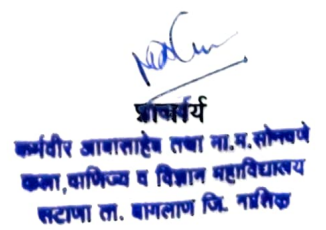 प्राचार्य
कर्मवीर आबासाहेब तथा ना.म.सोनवणे
कला,वाणिज्य व विज्ञान महाविद्यालय
सटाणा ता. बागलाण जि. नाशिक